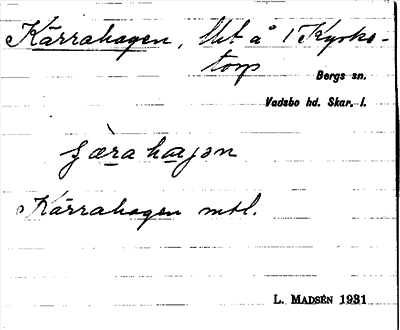 Kärrahagen, lht å 1 Kyrko-
torp
Bergs sn.
Vadsbo hd. Skar. l.
çæra hajən
Kärrahagen mtl.
L. MADSÉN 1931